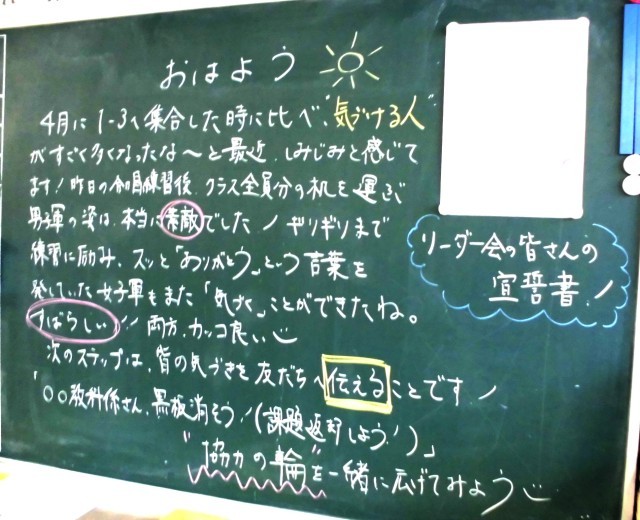 おはよう
4月に1-3へ集合した時に比べ"気づける人"
がすごく多くなったな〜と最近、しみじみと感じて
ます!昨日の合唱練習後、クラス全員分の机を運ぶ
男子軍の姿は、本当に素敵でした!ギリギリまで
練習に励み、スッと「ありがとう」という言葉を
発していた女子軍もまた「気づく」ことができたね。
すばらしい!!両方、カッコ良い
次のステップは、皆の気づきを友だちへ伝えることです!
「○○教科係さん、黒板消そう!(課題返却しよう!)」
"協力の輪"を一緒に広げてみよう
リーダー会の皆さんの
宣誓書!